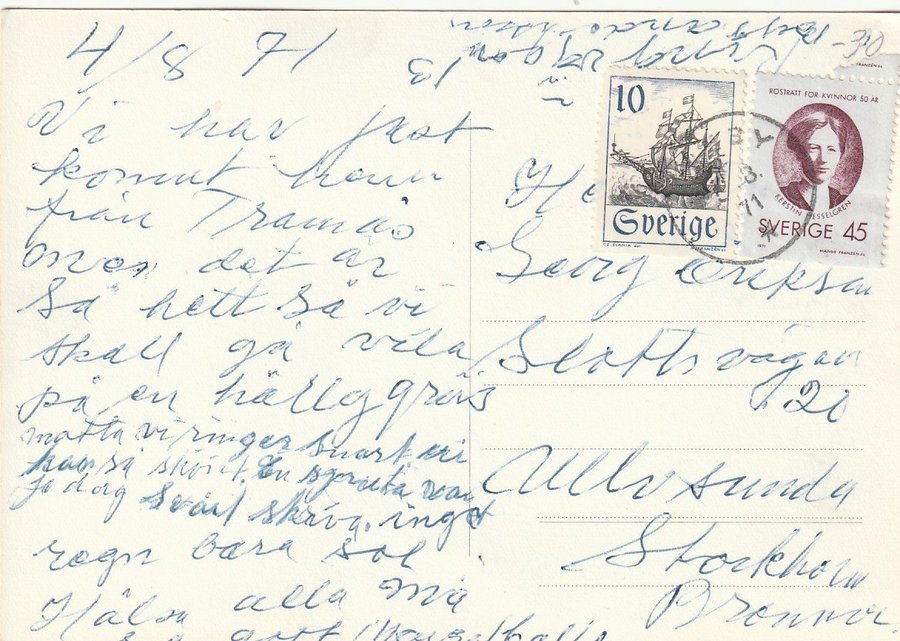 4/8 71
Vi har just
komit hem
från Tranås
men det är
så hett så vi
skall gå vila
på en härlig gräs
matta vi ringer snart vi
har så skönt. En spruta var
je dag Svårt skriva. inget
regn bara sol
Hälsa alla må
så gott
-30
10
Sverige
CZ. SLANIA
FRANZÉN
ROSTRÄTT FÖR KVINNOR 50 ÅR
KERSTIN HESSELGREN
SVERIGE 45
1971
BY
8.
71
Georg Erikson
Slottsvägen
20
Ulvsunda
Stockholm
Bromma